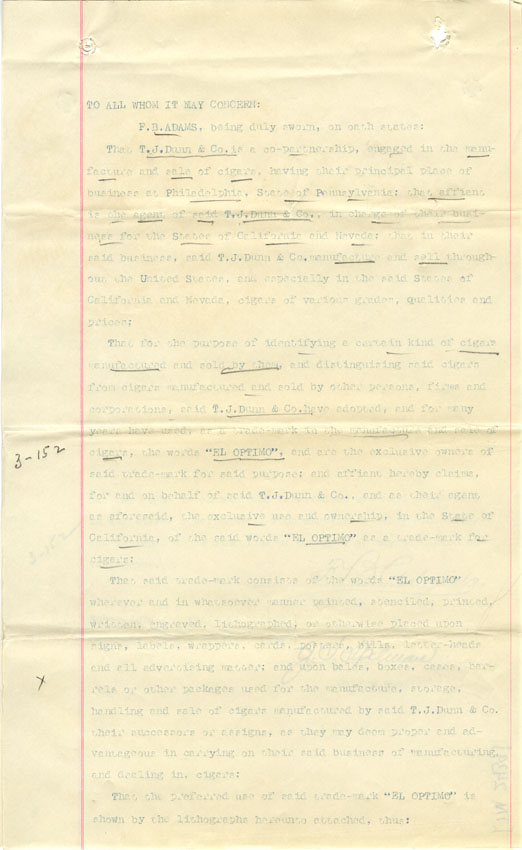 TO ALL WHOM IT MAY CONCERN:
F.B.ADAMS, being duly sworn, on oath states:
That T.J.Dunn & Co. is a co-partnership, engaged in the manu-
facture and sale of cigars, having their principal place of
business at Philadelphia, State of Pennsylvania; that affiant
is the agent of said T.J.Dunn & Co., in charge of their busi-
ness for the States of California and Nevada; that in their
said business, said T.J.Dunn & Co. manufacture and sell through-
out the United States, and especially in the said States of
California and Nevada, cigars of various grades, qualities and
prices;
That for the purpose of identifying a certain kind of cigars
manufactured and sold by them, and distinguising said cigars
from cigars manufactured and sold by other persons, firms and
corporations, said T.J.Dunn & Co. have adopted, and for many
years have used, as a trade-mark in the manufacture and sale of
cigars, the words "EL OPTIMO", and are the exclusive owners of
said trade-mark for said purpose; and affiant hereby claims,
3-152
for and on behalf of said T.J.Dunn & Co., and as their agent
as aforesaid, the exclusive use and ownership, in the State of
California, of the said words "EL OPTIMO" as a trade-mark for
3-152
cigars;
That said trade-mark consists of the words "EL OPTIMO"
wherever and in whatsoever manner painted, stenciled, printed,
written, engraved, lithographed, or otherwise placed upon
signs, labels, wrappers, cards, posters, bills, letter-heads
and all advertising matter; and upon bales, boxes, cases, bar-
x
rels or other packages used for the manufacture, storage,
handling and sale of cigars manufactured by said T.J.Dunn & Co.
their successors or assigns, as they may deem proper and ad-
vantageous in carrying on their said business of manufacturing,
and dealing in, cigars;
That the preferred use of said trade-mark "EL OPTIMO" is
shown by the lithographs hereunto attached, thus: